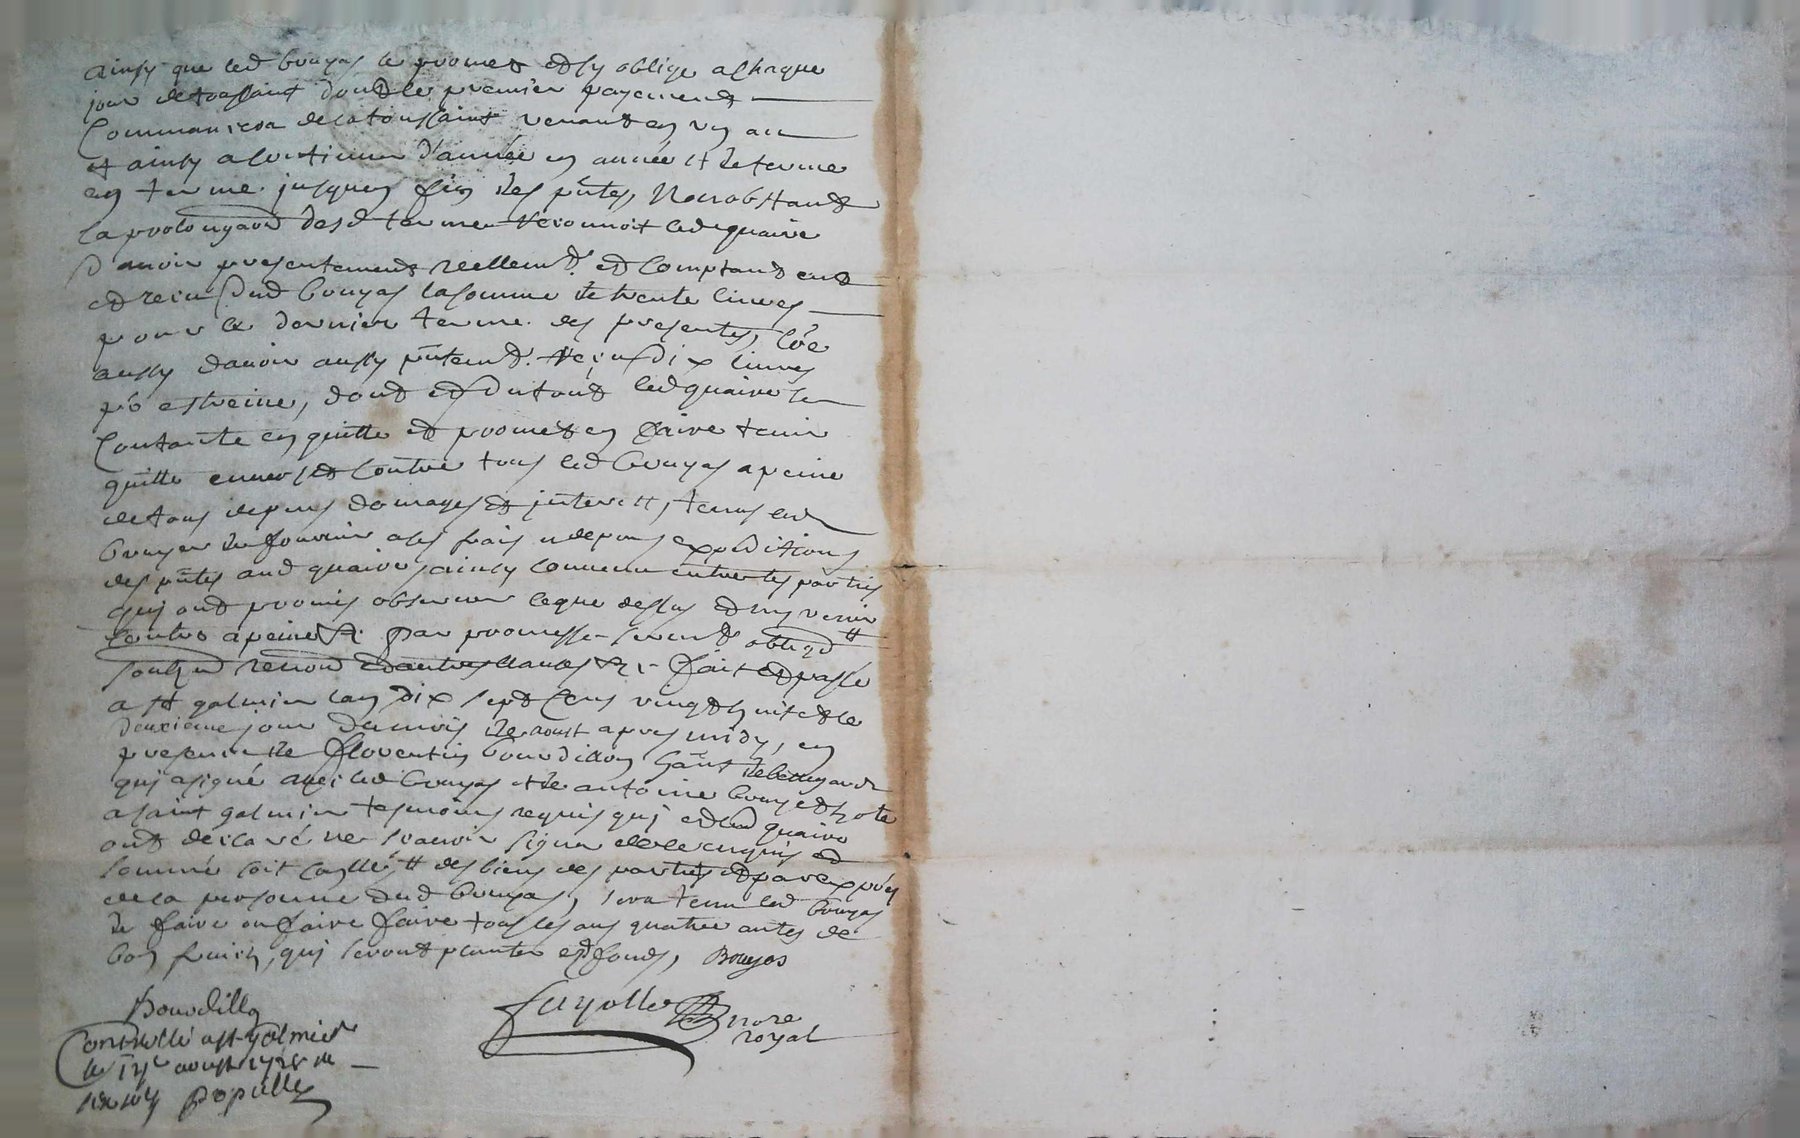 ainsy que led bouyas le promet et sy oblige a chaque
jour de toussaint dont le premier payement
commancera de la toussaint venant en un an
et ainsy a continuer d'année en année et de terme
en terme jusques fin des pntes, Nonobstant
la prolongaon desd termes Reconnoit led quaire
d'avoir presentement reellemt et comptant eus
et receu dud bouyas la somme de trente livres
pour le dernier terme des presentes, co͞e
aussy d'avoir aussy pntemt Reçu dix livres
po estreine, dont et du tout led quaire se
contante en quitte et promet en faire tenir
quitte envers et contre tous led bouyas a peine
de tous depens domages et interest, tenus led
bouyas de fournir a ses frais et depens expeditions
des pntes aud quaire, ainsy convenu entre les parties
qui ont promis observer ce que dessus et ny venir
contre a peine &. par promesse serment obligon
soubzon renon et autres clauses &. fait et passé
a st galmier lan dix sept cens vingt huit et le
deuxieme jour du mois de aoust apres midy, en
presence de florentin bourdillon
qui a signé avec led bouyas et de antoine bouyet hote
a saint galmier tesmoins requis qui et led quaire
ont declaré ne scavoir signer de ce enquis et
sommé soit des biens des parties et par exprés
de la personne dud bouyas, sera tenu led bouyas
de faire ou faire faire tous les ans quatre antes de
bon fruict, qui seront plantes esd fonds, Bouyas
Bourdillon
fayolle nore
royal
Controllé a st galmier
le aoust 1728
populle